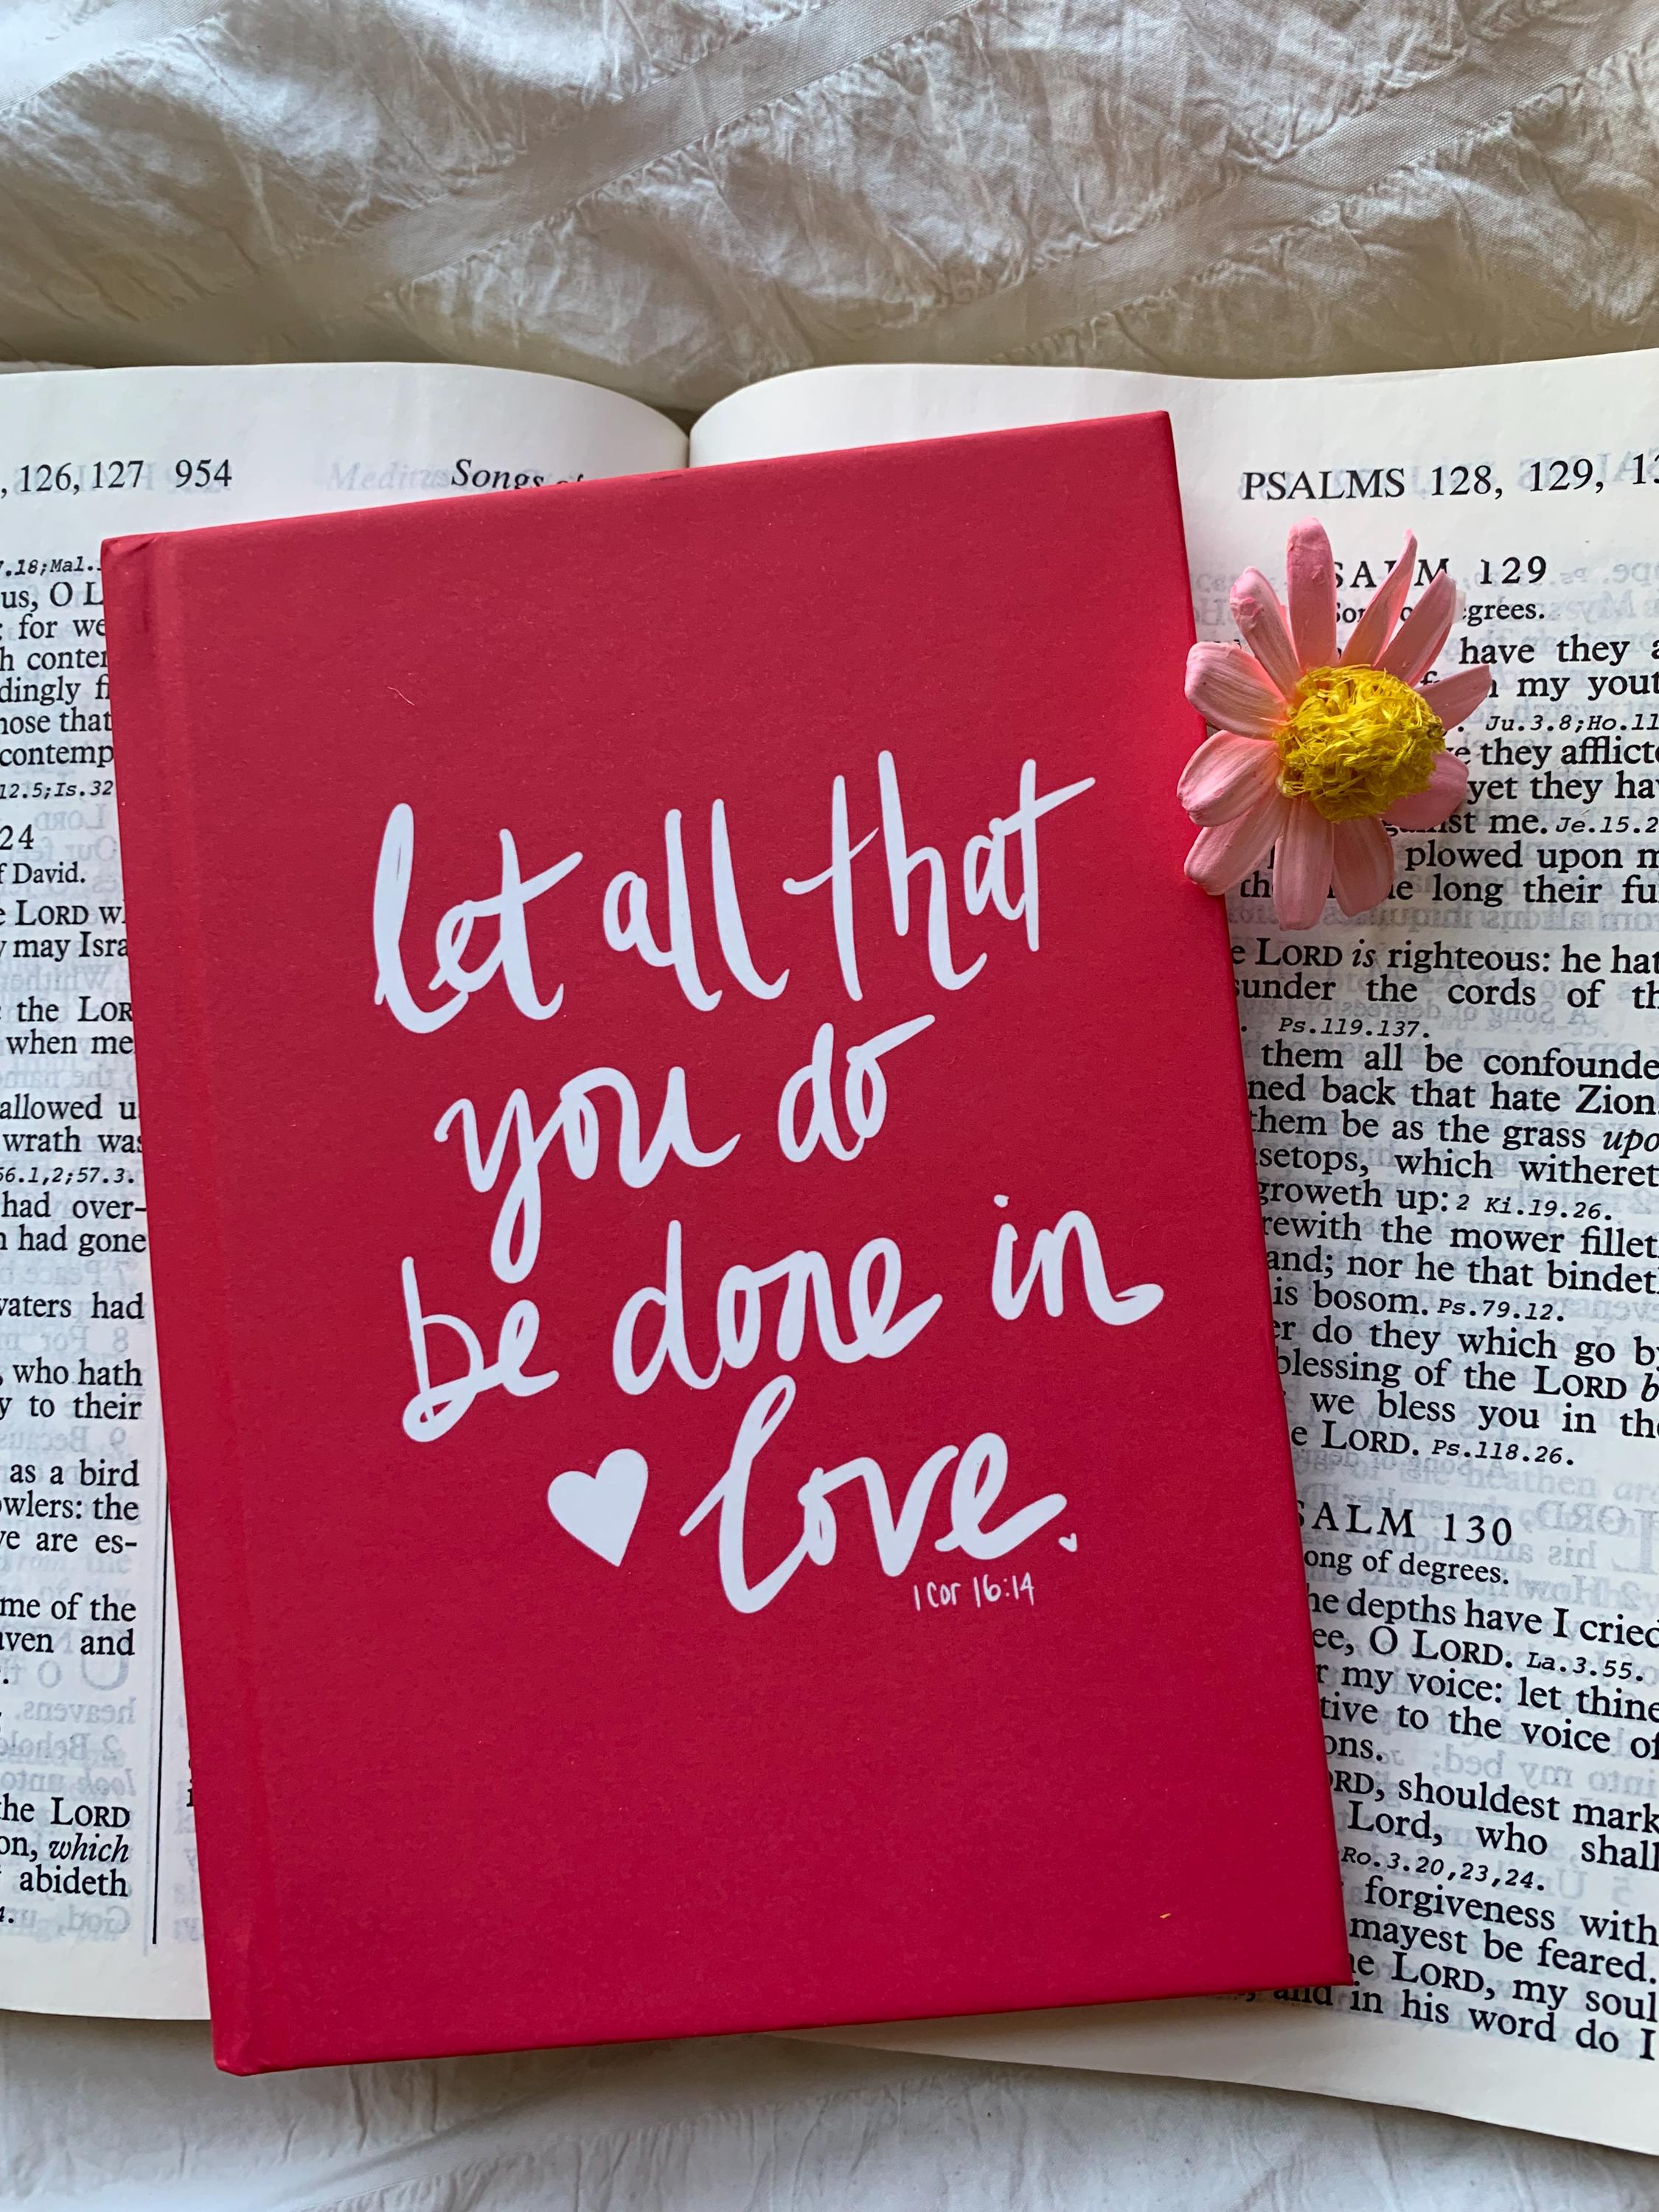 , 126, 127 954
Songs
7.18;Mal.
us, O L
: for we
h conten
dingly f
hose that
contemp
12.5;Is.32
24
f David.
e LORD w
y may Isra
: the LOR
when me
allowed u
wrath was
56.1,2;57.3.
had over-
n had gone
waters had
, who hath
y to their
as a bird
owlers: the
ve are es-
me of the
aven and
the LORD
on, which
abideth
4.
let all that
you do
be done in
love.
1 Cor 16:14
PSALMS 128, 129, 13
SALM 129
Son of degrees.
have they a
my yout
Ju.3.8;Ho.11
e they afflicte
yet they hav
against me. Je.15.2
plowed upon m
long their fu
e LORD is righteous: he hat
sunder the cords of th
Ps.119.137.
them all be confounde
ned back that hate Zion.
them be as the grass upo
setops, which witheret
groweth up: 2 Ki.19.26.
rewith the mower fillet
and; nor he that bindet
is bosom. Ps.79.12.
er do they which go by
blessing of the LORD b
we bless you in the
e LORD. Ps.118.26.
SALM 130
ong of degrees.
he depths have I cried
ee, O LORD. La.3.55.
r my voice: let thine
tive to the voice of
ons.
ORD, shouldest mark
Lord, who shall
Ro.3.20,23,24.
forgiveness with
mayest be feared.
he LORD, my soul
, and in his word do I